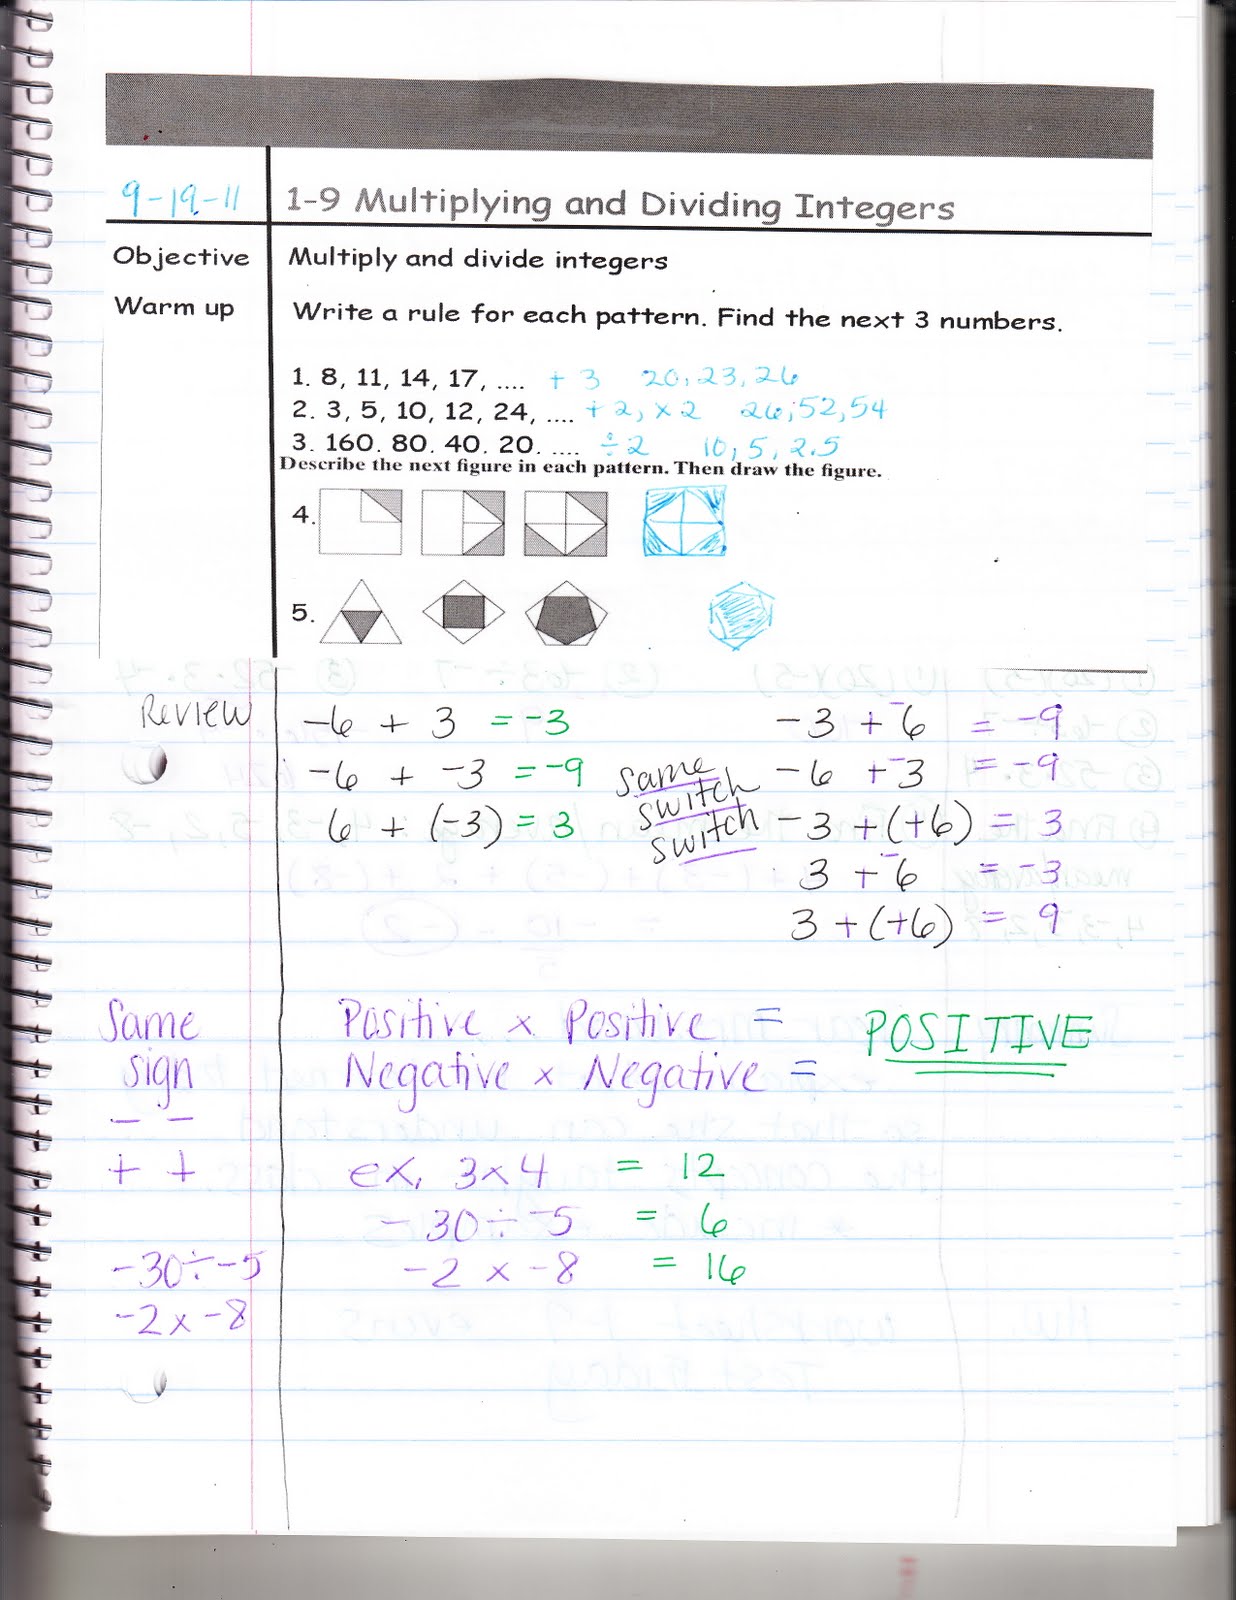 9-19-11 1-9 Multiplying and Dividing Integers
Objective Multiply and divide integers
Warm up Write a rule for each pattern. Find the next 3 numbers.
1. 8, 11, 14, 17, .... + 3 20, 23, 26
2. 3, 5, 10, 12, 24, .... + 2, x 2 26, 52, 54
3. 160. 80. 40. 20. .... ÷ 2 10, 5, 2.5
Describe the next figure in each pattern. Then draw the figure.
4.
5.
Review -6 + 3 = -3 -3 + -6 = -9
-6 + -3 = -9 same -6 + -3 = -9
6 + (-3) = 3 switch -3 + (+6) = 3
switch 3 + -6 = -3
3 + (+6) = 9
Same Positive x Positive = POSITIVE
sign Negative x Negative =
- -
+ + ex. 3 x 4 = 12
-30 ÷ -5 = 6
-30 ÷ -5 -2 x -8 = 16
-2 x -8